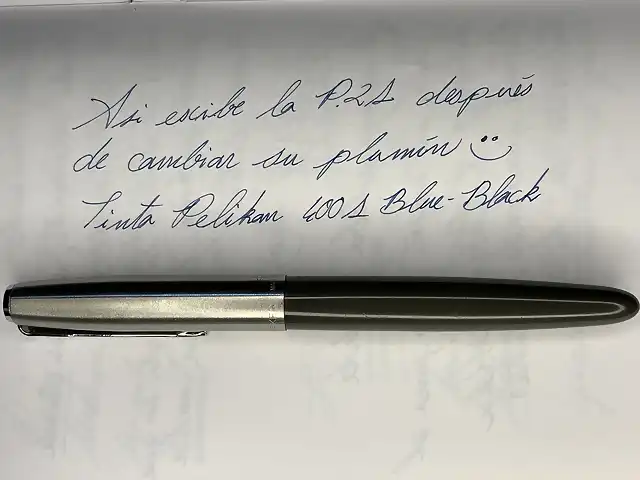 Asi escribe la P.21 después
de cambiar su plumín
Tinta Pelikan 4001 Blue-Black